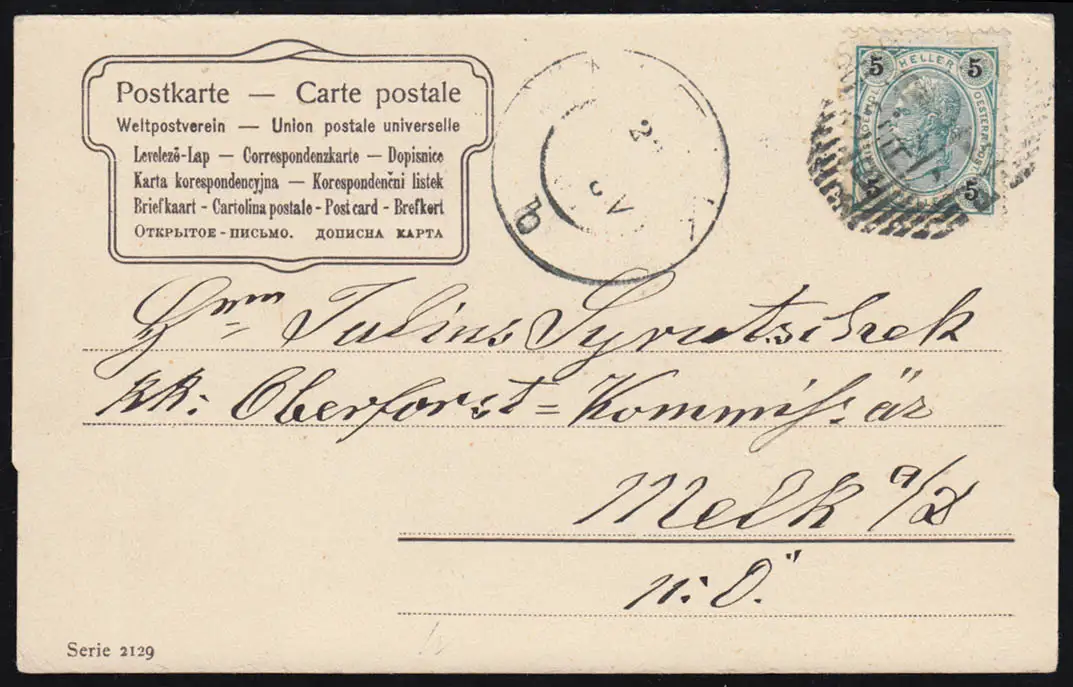 Postkarte — Carte postale
Weltpostverein — Union postale universelle
Levelező-Lap — Correspondenzkarte — Dopisnice
Karta korespondencyjna — Korespondenčni listek
Briefkaart - Cartolina postale - Post card - Brefkort
Открытое - письмо. дописна карта
5 HELLER 5
5
Hrn Julius Syrutschek
kk: Oberforst = Kommissär
Melk a/D
N: Ö.
Serie 2129